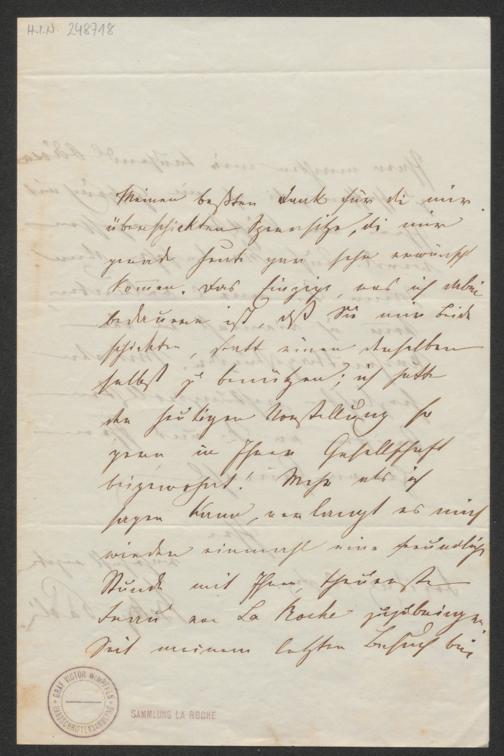 H.I.N. 248718
Meinen beßten Dank für die mir
überschickten Sperrsitze, die mir
gerade heute gar sehr erwünscht
komen. Das Einzige, was ich dabei
bedauere ist, daß Sie mir beide
schickten, statt einen derselben
selbst zu benützen; ich hätte
der heutigen Vorstellung so
gern in Ihrer Gesellschaft
beigewohnt! Mehr als ich
sagen kann, verlangt es mich
wieder einmahl eine freundliche
Stunde mit Ihnen, theuerste
Frau von La Roche zuzubringen
Seit meinem letzten Besuch bei
GRAF VICTOR WIMPFFEN
HANDSCHRIFTENSAMMLUNG
SAMMLUNG LA ROCHE